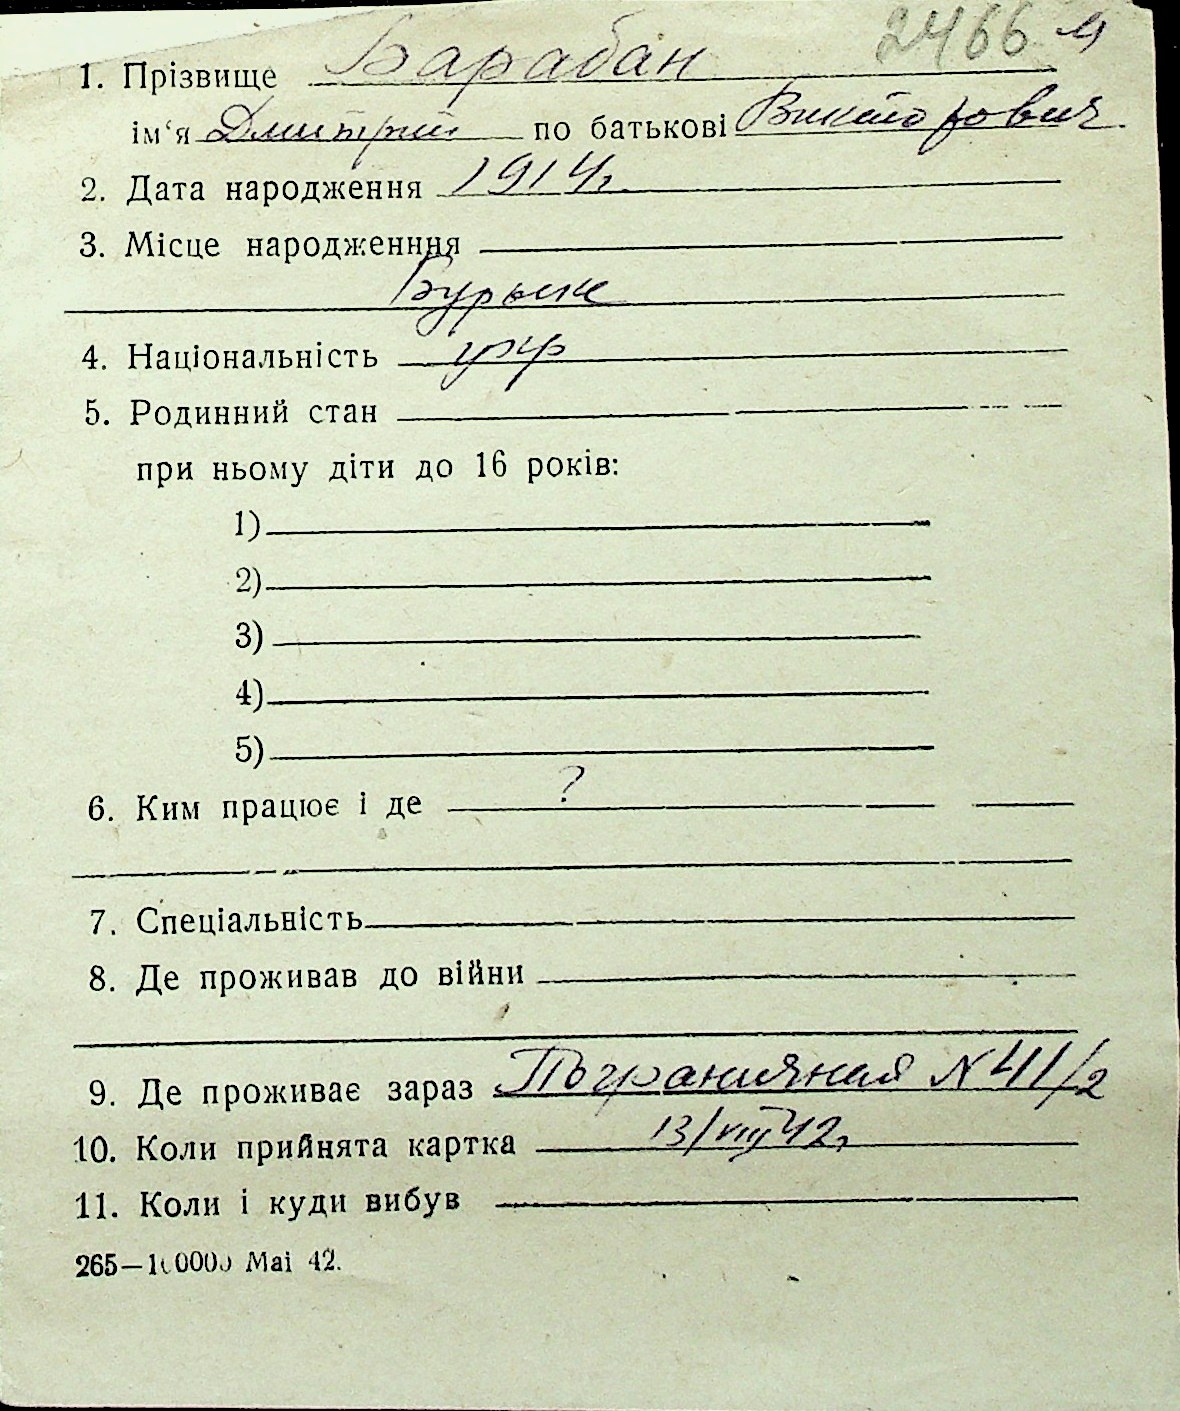 2466
1. Прізвище Барабан
ім‘я Дмитрий по батькові Викторович
2. Дата народження 1914г.
3. Місце народженння
Бурынь
4. Національність укр
5. Родинний стан
при ньому діти до 16 років:
1)
2)
3)
4)
5)
6. Ким працює і де ?
7. Спеціальність
8. Де проживав до війни
9. Де проживає зараз Пограничная N 41/2
10. Коли прийнята картка 13/VIII 42г.
11. Коли і куди вибув
265—100000 Маі 42.